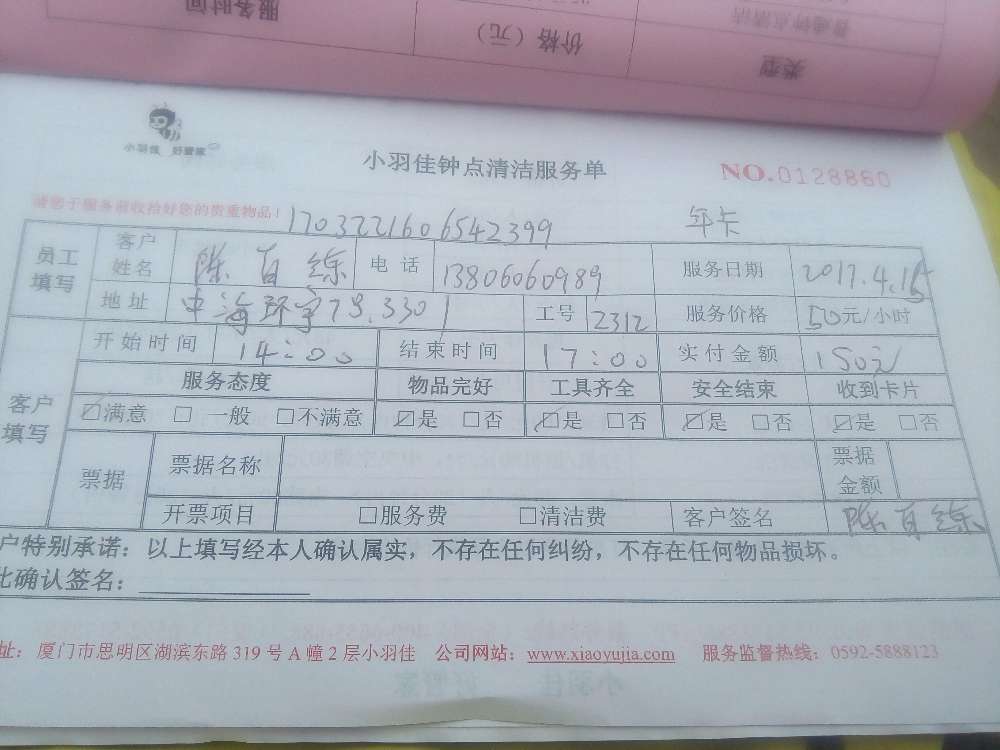 服务时间
价格（元）
类型
普通钟点清洁
小羽佳 好管家
小羽佳钟点清洁服务单
NO.0128860
请您于服务前收拾好您的贵重物品！
1703221606542399 年卡
员工填写
客户姓名 陈百练 电话 13806060989 服务日期 2017.4.15
地址 中海环宇7号.3301 工号 2312 服务价格 50元/小时
客户填写
开始时间 14:00 结束时间 17:00 实付金额 150元
服务态度 物品完好 工具齐全 安全结束 收到卡片
☑满意 □一般 □不满意 ☑是 □否 ☑是 □否 ☑是 □否 ☑是 □否
票据 票据名称 票据金额
开票项目 □服务费 □清洁费 客户签名 陈百练
户特别承诺：以上填写经本人确认属实，不存在任何纠纷，不存在任何物品损坏。
此确认签名：
址：厦门市思明区湖滨东路 319 号 A 幢 2 层小羽佳 公司网站：www.xiaoyujia.com 服务监督热线：0592-5888123